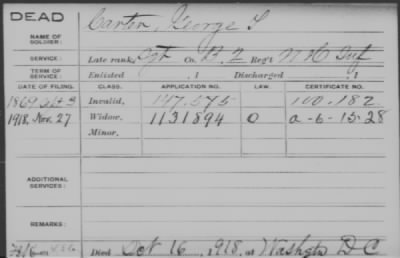 DEAD
NAME OF SOLDIER: Carter, George T
SERVICE: Late rank, Sgt Co. B. 2 Reg't N H Inf
TERM OF SERVICE: Enlisted , 1 Discharged , 1
DATE OF FILING. CLASS. APPLICATION NO. LAW. CERTIFICATE NO.
1869 Oct Invalid, 147.575 100.182
1918, Nov. 27 Widow, 1131894 O a-6-15-28
Minor,
ADDITIONAL SERVICES:
REMARKS:
Died Oct 16, 1918, at Washgtn D C